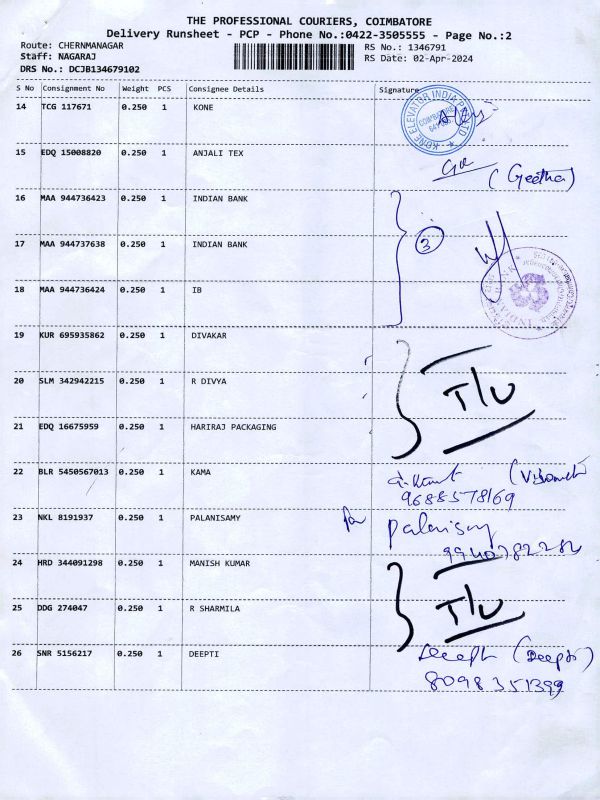 THE PROFESSIONAL COURIERS, COIMBATORE
Delivery Runsheet - PCP - Phone No.:0422-3505555 - Page No.:2
Route: CHERNMANAGAR
RS No.: 1346791
Staff: NAGARAJ
RS Date: 02-Apr-2024
DRS No.: DCJB134679102
S No Consignment No Weight PCS Consignee Details Signature
14 TCG 117671 0.250 1 KONE
KONE ELEVATOR INDIA COIMBATORE
15 EDQ 15008820 0.250 1 ANJALI TEX
(Geetha)
16 MAA 944736423 0.250 1 INDIAN BANK
17 MAA 944737638 0.250 1 INDIAN BANK
3
18 MAA 944736424 0.250 1 IB
INDIAN BANK
19 KUR 695935862 0.250 1 DIVAKAR
20 SLM 342942215 0.250 1 R DIVYA
T/U
21 EDQ 16675959 0.250 1 HARIRAJ PACKAGING
22 BLR 5450567013 0.250 1 KAMA
9688578169
23 NKL 8191937 0.250 1 PALANISAMY
Palanisamy
24 HRD 344091298 0.250 1 MANISH KUMAR
25 DDG 274047 0.250 1 R SHARMILA
T/U
26 SNR 5156217 0.250 1 DEEPTI
(Deepti)
8098351399